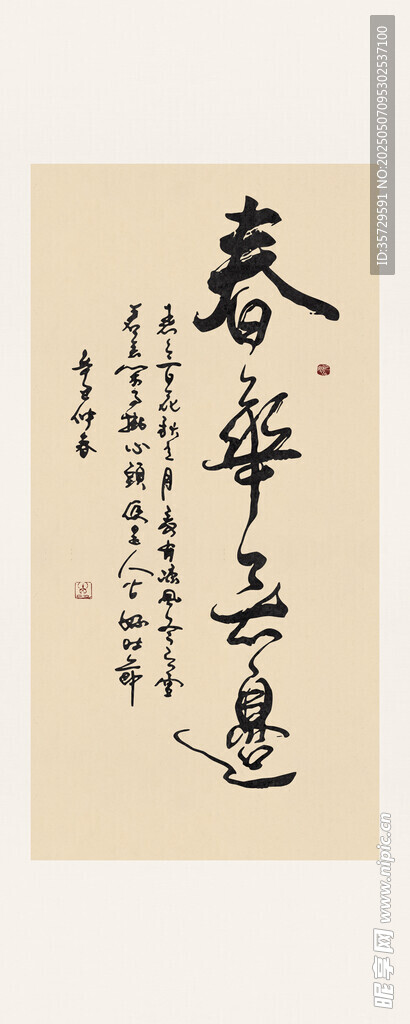 春華無邊
春有百花秋有月夏有涼風冬有雪
若無閑事掛心頭便是人間好時節
辛丑仲春
ID:35729591 NO:20250507095302537100
昵享网 www.nipic.cn